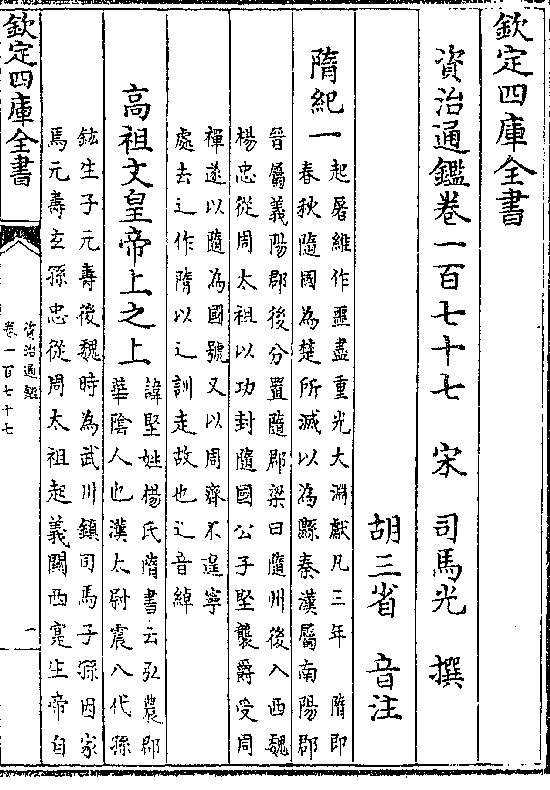 欽定四庫全書
資治通鑑卷一百七十七 宋 司馬光 撰
胡三省 音注
隋紀一
起屠維作噩盡重光大淵獻凡三年 隋即
春秋隨國為楚所滅以為縣秦漢屬南陽郡
晉屬義陽郡後分置隨郡梁曰隨州後入西魏
楊忠從周太祖以功封隨國公子堅襲爵受周
禪遂以隨為國號又以周齊不遑寧
處去辶作隋以辶訓走故也辶音綽
高祖文皇帝上之上
諱堅姓楊氏隋書云弘農郡
華陰人也漢太尉震八代孫
鉉生子元壽後魏時為武川鎮司馬子孫因家
焉元壽玄孫忠從周太祖起義關西寔生帝自
欽定四庫全書
資治通鑑
卷一百七十七
一